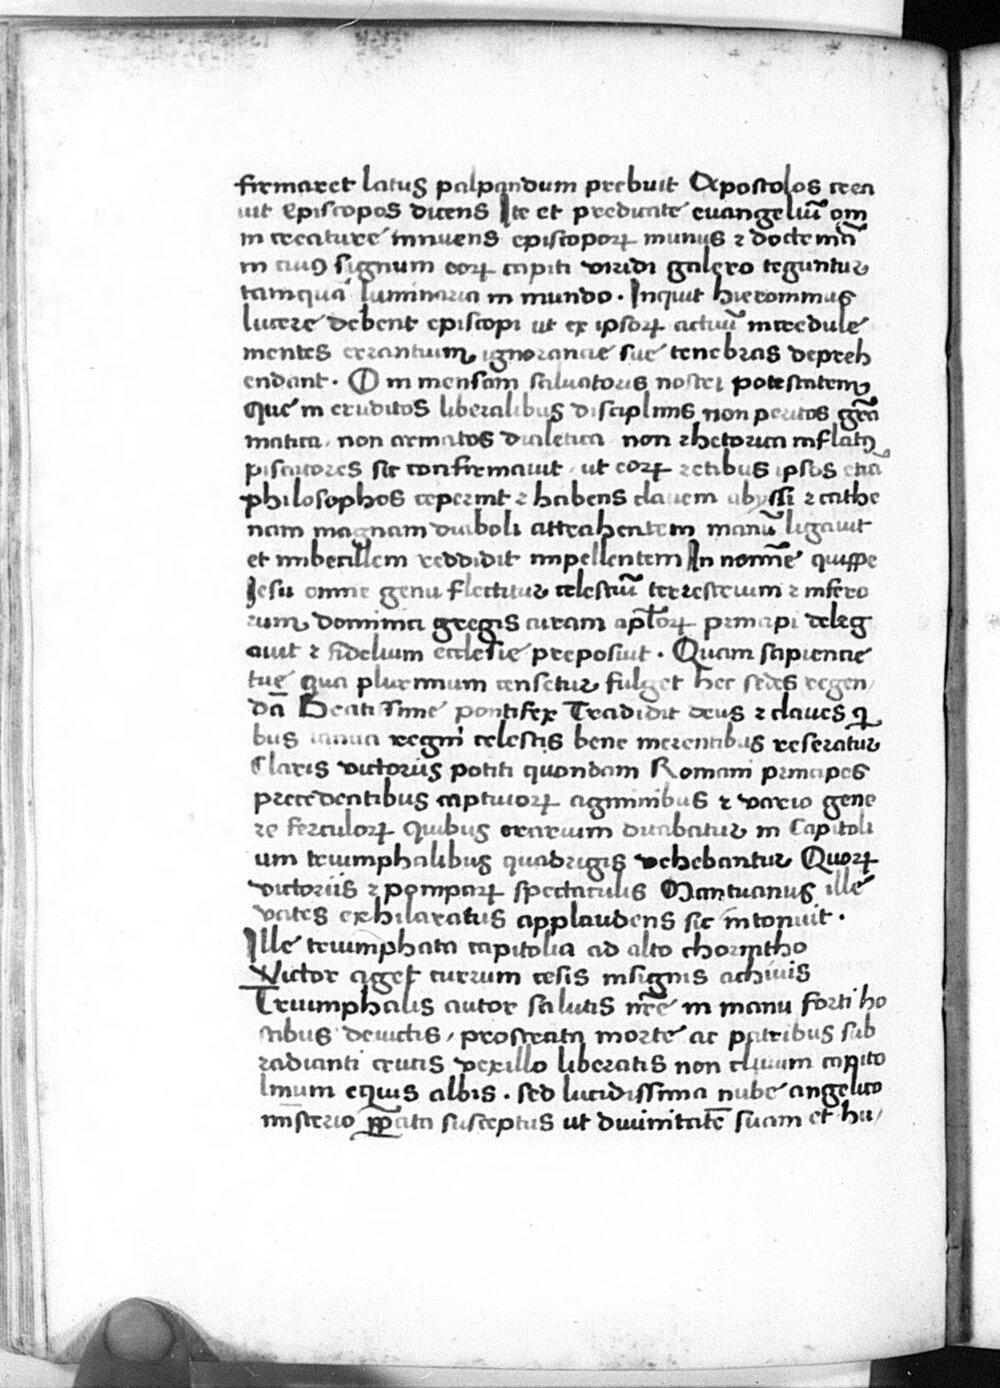 firmaret latus palpandum prebuit Apostolos crea
uit episcopos dicens Ite et predicate euangeliũ om
ni creature innuens episcoporꝝ munus ⁊ doctrinã
in cuiꝰ signum eorꝝ capiti viridi galero teguntur
tamquã luminaria in mundo · Inquit hieronimus
lucere debent episcopi ut ex ipsorꝝ actuũ incredule
mentes errantium ignorancie sue tenebras depreh
endant · O in mensam saluatoris nostri potestatem
que in eruditos liberalibus disciplinis non peritos grã
matica, non armatos dialetica non rhetorica inflatꝯ
piscatores sic confirmauit, ut eorꝝ retibus ipsos eciã
philosophos ceperint ⁊ habens clauem abyssi ⁊ cathe
nam magnam diaboli attrahentem manũ ligauit
et imbecillem reddidit impellentem In nomĩe quippe
Jesu omne genu flectitur celestiũ terrestrium ⁊ infero
rum, dominici gregis curam apl̃orꝝ principi deleg
auit ⁊ fidelium ecclesie preposuit · Quam sapiencie
tue qua plurimum censetur fulget hec sedes regen/
dã Beatissime pontifex Tradidit deus ⁊ claues q̃
bus ianua regni celestis bene merentibus reseratur
Claris victoriis potiti quondam Romani principes
precedentibus captiuorꝝ agminibus ⁊ vario gene
re ferculorꝝ quibus erarium ditabatur in Capitoli
um triumphalibus quadrigis vehebantur Quorꝝ
victoriis ⁊ pomparꝝ spectaculis Mantuanus ille
vates exhilaratus applaudens sic intonuit ·
Ille triumphata capitolia ad alto chorintho
Victor aget currum cesis insignis achiuis
Triumphalis autor salutis nr̃e in manu forti ho
stibus deuictis, prostrata morte ac patribus sub
radianti crucis vexillo liberatis non cliuum capito
linum equis albis · sed lucidissima nube angelico
misterio p̱p̱ata susceptus ut diuinitatẽ suam et hu/